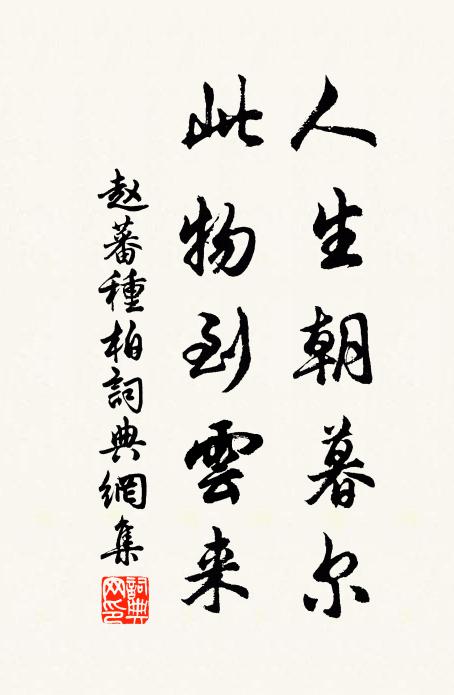 人生朝暮尔
此物到雲来
赵蕃種柏詞典網集
詞典网印